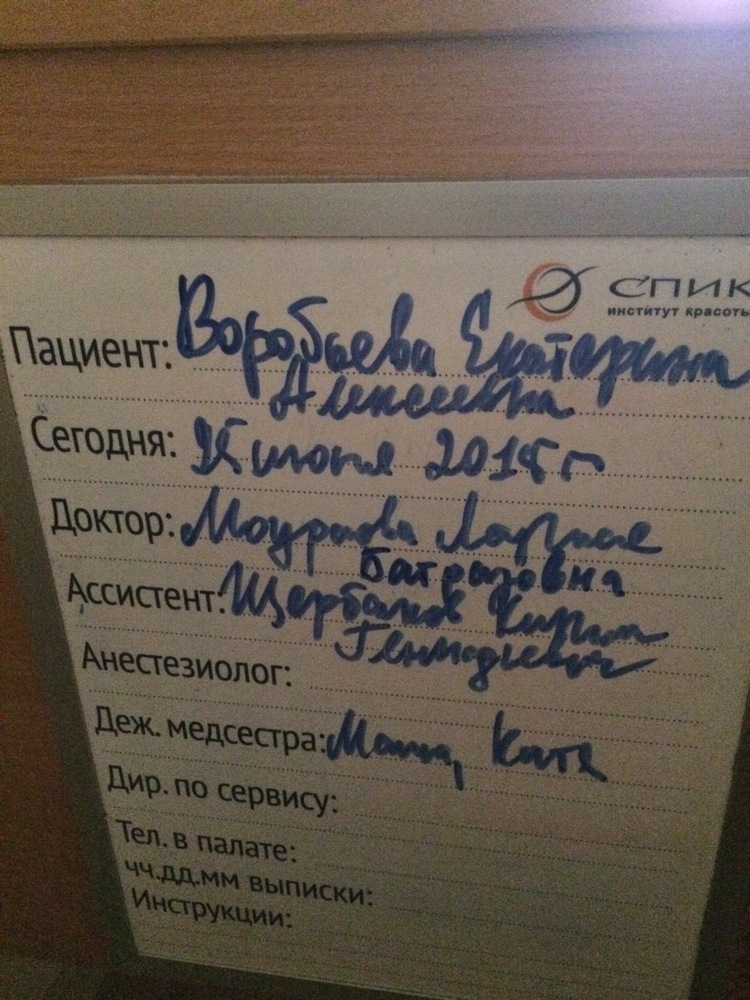 СПИК
институт красоты
Пациент: Воробьева Екатерина
Алексеевна
Сегодня: июня 2015г
Доктор: Моураова Лариса
Батразовна
Ассистент: Щербаков Кирилл
Геннадьевич
Анестезиолог:
Деж. медсестра: Маша, Катя
Дир. по сервису:
Тел. в палате:
чч.дд.мм выписки:
Инструкции: